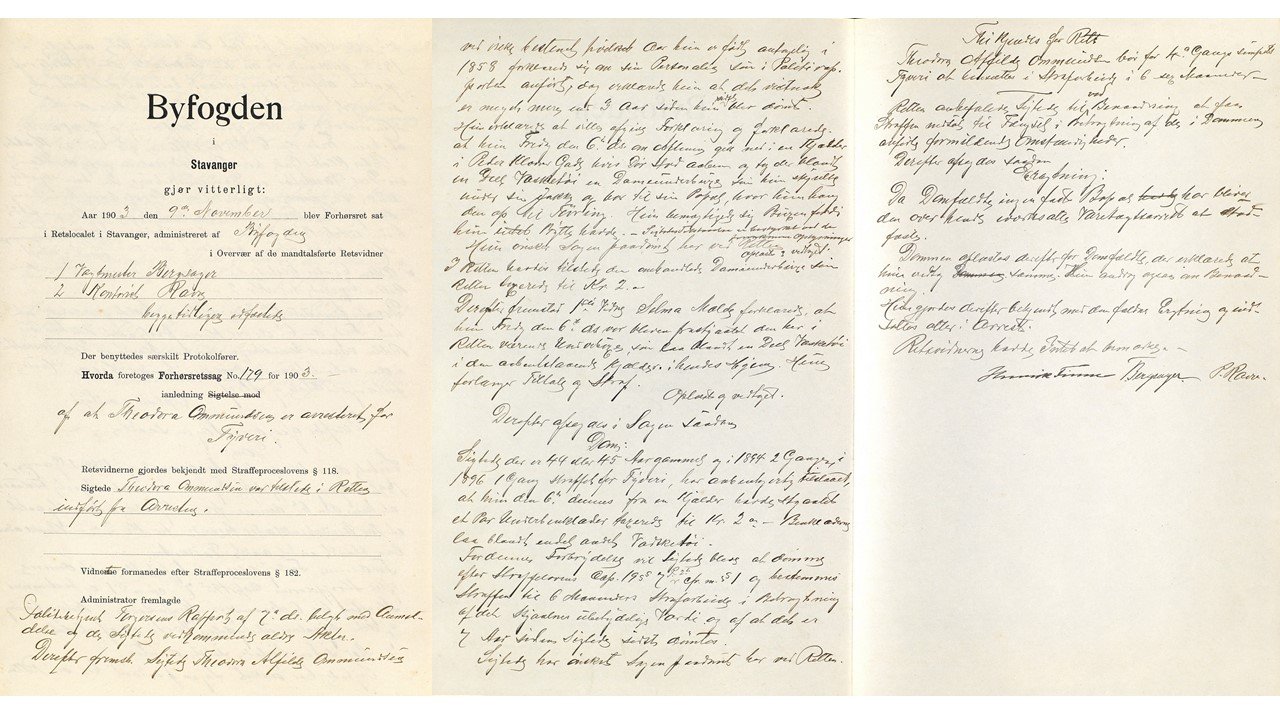 Byfogden
i
Stavanger
gjør vitterligt:
Aar 1903 den 9de November blev Forhøret sat
i Retslocalet i Stavanger, administreret af Byfogden
i Overvær af de mandtalsførte Retsvidner
1 Bergsager
2 Kontorist Ravn
begge tidligere edfæstede
Der benyttedes særskilt Protokolfører.
Hvorda foretoges Forhørsretssag No. 179 for 1903.
ianledning Sigtelse mod
af at Theodora Ommundsen er arresteret for
Tyveri.
Retsvidnerne gjordes bekjendt med Straffeproceslovens § 118.
Sigtede Theodora Ommundsen var tilstede i Retten
indført fra Arresten.
Vidnerne formanedes efter Straffeproceslovens § 182.
Administrator fremlagde
Rapport af 7de ds. belagt med Anmel-
delse og de Sigtede vedkommende Akter.
Derefter fremst. Sigtede Theodora Alfilde Ommundsen
1858 forklarede sig om sin Personalia som i Politirap-
porten anført, dog erklærede hun at det
er meget mere end 3 Aar siden hun sidst blev dømt.
Hun erklærede at ville afgive Forklaring og forklarede:
at hun Fredag den 6 ds om gik ned i en Kjælder
i Peder Klows Gade hvis Dør stod aaben og tog der blandt
en Deel Vasketøi en Dameunderbuxe som hun skjulte
under sin og bar til sin Bopæl, hvor hun hang
den op til Tørring.
Hun ønsker Sagen paadømt her ved Retten
oplæst og vedtaget
I Retten havdes tilstede den omhandlede Dameunderbuxe som
Retten taxerede til Kr. 2.-
Derefter fremstod 1ste Vidne Selma Molde forklarede, at
hun Fredag den 6 ds. var bleven frastjaalet den her i
Retten værende Underbuxe, som laa blandt en Deel Vasketøi
i den Kjælder i hendes Hjem. Hun
forlanger Tiltale og Straf.
Oplæst og vedtaget.
Derefter afsagdes i Sagen saadan
Dom:
Sigtede der er 44 eller 45 Aar gammel og i 1894 2 Gange, i
1896 1 Gang straffet for Tyveri, har tilstaaet,
at hun den 6te dennes fra en Kjælder havde stjaalet
et Par Underbenklæder taxerede til Kr. 2.- Benklæderne
laa blandt endel andet Vasketøi.
For denne Forbrydelse vil Sigtede blive at dømme
efter Straffelovens Cap. 19 og bestemmes
Straffen til 6 Maaneders Strafarbeide i Betragtning
af det Stjaalnes ubetydelige Værdi og af at det er
7 Aar siden Sigtede sidst dømtes.
Sigtede har ønsket Sagen paadømt her ved Retten.
Thi kjendes for Ret:
Theodora Alfilde Ommundsen bør for 4de Gang simpelt
Tyveri at hensættes i Strafarbeide i 6 sex Maaneder.
Retten anbefalede Sigtede til ved Benaadning at faa
Straffen nedsat til Fængsel i Betragtning af de i Dommen
anførte formildende Omstændigheder.
Derefter afsagdes saadan
Kjendelse:
Da Domfældte ingen fast Bopæl har bliver
den over hende Varetægtsarrest at stad-
fæste.
Dommen oplæstes derefter for Domfældte, der erklærede at
hun vedtog samme. Hun androg ogsaa om Benaad-
ning.
Hun gjordes derefter bekjendt med den faldne Kjendelse og ind-
sattes atter i Arrest.
Retsvidnerne havde Intet at bemærke.-
Bergsager P. Ravn.